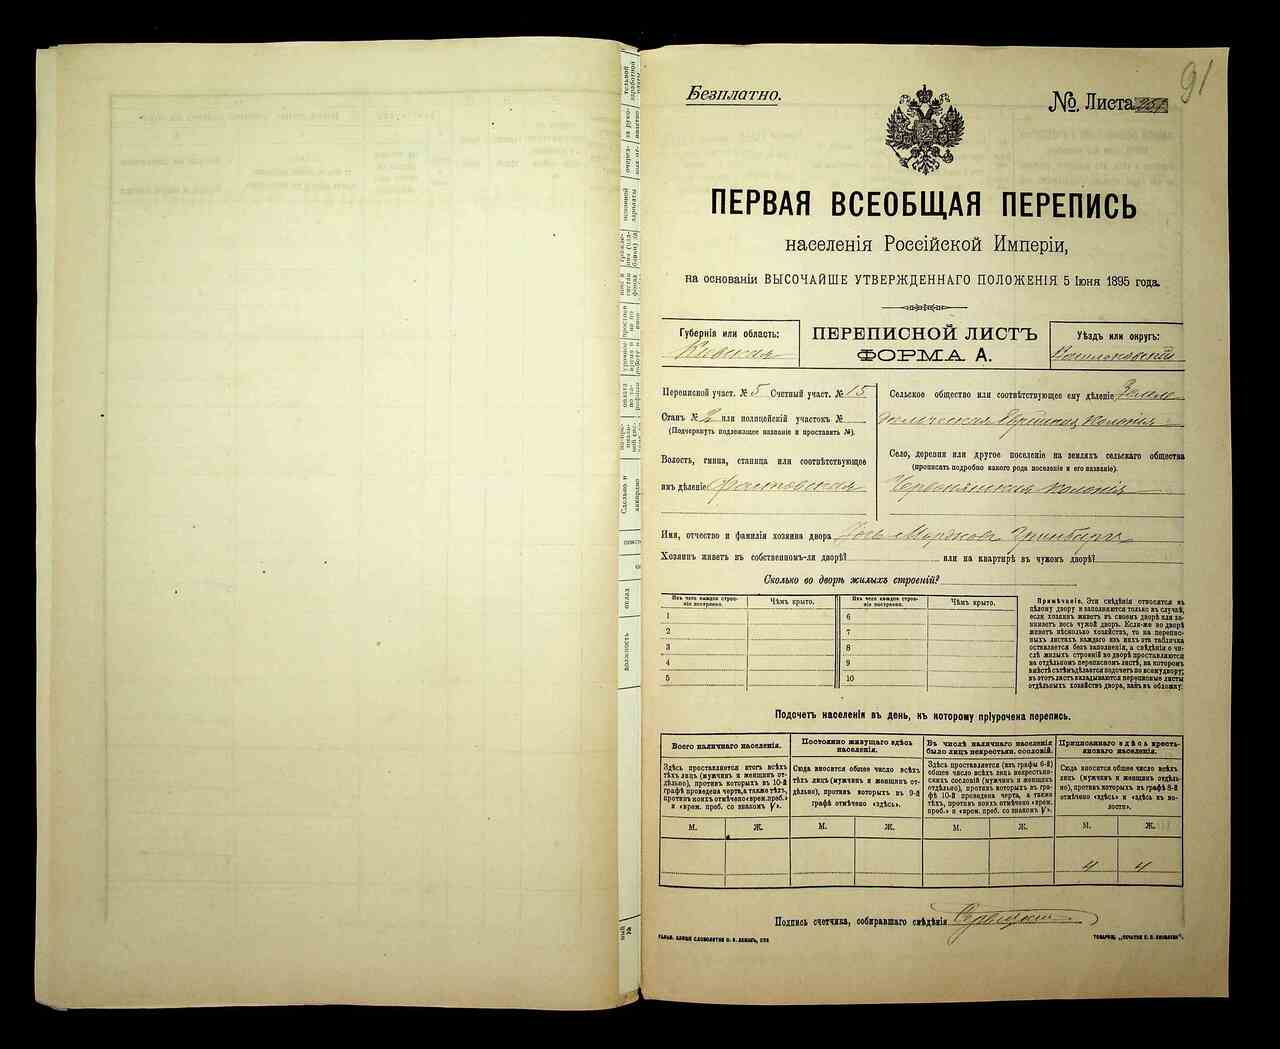 91
Безплатно.
№ Листа
ПЕРВАЯ ВСЕОБЩАЯ ПЕРЕПИСЬ
населенія Россійской Имперіи,
на основаніи ВЫСОЧАЙШЕ УТВЕРЖДЕННАГО ПОЛОЖЕНІЯ 5 Іюня 1895 года.
Губернія или область:
Кіевская
ПЕРЕПИСНОЙ ЛИСТЪ
ФОРМА А.
Уѣздъ или округъ:
Васильковскій
Переписной участ. № 5 Счетный участ. № 15
Станъ № 2 или полицейскій участокъ №
(Подчеркнуть подлежащее названіе и проставить №).
Волость, гмина, станица или соотвѣтствующее
имъ дѣленіе Фастовская
Сельское общество или соотвѣтствующее ему дѣленіе Земле
дельческая Еврейская колонія
Село, деревня или другое поселеніе на земляхъ сельскаго общества
(прописать подробно какого рода поселеніе и его названіе).
Червонянская колонія
Имя, отчество и фамилія хозяина двора Мордков Гринберг
Хозяинъ живетъ въ собственномъ-ли дворѣ? или на квартирѣ въ чужомъ дворѣ?
Сколько во дворѣ жилыхъ строеній?
Изъ чего каждое строе-
ніе построено.
Чѣмъ крыто.
Изъ чего каждое строе-
ніе построено.
Чѣмъ крыто.
1 6
2 7
3 8
4 9
5 10
Примѣчаніе. Эти свѣдѣнія относятся къ
цѣлому двору и заполняются только въ случаѣ,
если хозяинъ живетъ въ своемъ дворѣ или за-
нимаетъ весь чужой дворъ. Если-же во дворѣ
живетъ нѣсколько хозяйствъ, то на перепис-
ныхъ листахъ каждаго изъ нихъ эта табличка
оставляется безъ заполненія, а свѣдѣнія о чи-
слѣ жилыхъ строеній во дворѣ проставляются
на отдѣльномъ переписномъ листѣ, на которомъ
вмѣстѣ съ тѣмъ дѣлается подсчетъ по всему двору;
въ этотъ листъ вкладываются переписные листы
отдѣльныхъ хозяйствъ двора, какъ въ обложку.
Подсчетъ населенія въ день, къ которому пріурочена перепись.
Всего наличнаго населенія.
Здѣсь проставляется итогъ всѣхъ
тѣхъ лицъ (мужчинъ и женщинъ от-
дѣльно), противъ которыхъ въ 10-й
графѣ проведена черта, а также тѣхъ,
противъ коихъ отмѣчено «врем. преб.»
и «врем. преб. со знакомъ V».
Постоянно живущаго здѣсь
населенія.
Сюда вносится общее число всѣхъ
тѣхъ лицъ (мужчинъ и женщинъ от-
дѣльно), противъ которыхъ въ 9-й
графѣ отмѣчено «здѣсь».
Въ числѣ наличнаго населенія
было лицъ некрестьян. сословій.
Здѣсь проставляется (изъ графы 6-й)
общее число всѣхъ лицъ некрестьян-
скихъ сословій (мужчинъ и женщинъ
отдѣльно), противъ которыхъ въ гра-
фѣ 10-й проведена черта, а также
тѣхъ, противъ коихъ отмѣчено «врем.
преб.» и «врем. преб. со знакомъ V».
Приписаннаго здѣсь кресть-
янскаго населенія.
Сюда вносится общее число всѣхъ
лицъ (мужчинъ и женщинъ отдѣль-
но), противъ которыхъ въ графѣ 8-й
отмѣчено «здѣсь» и «здѣсь въ во-
лости».
М. Ж. М. Ж. М. Ж. М. Ж.
4 4
Подпись счетчика, собиравшаго свѣдѣнія